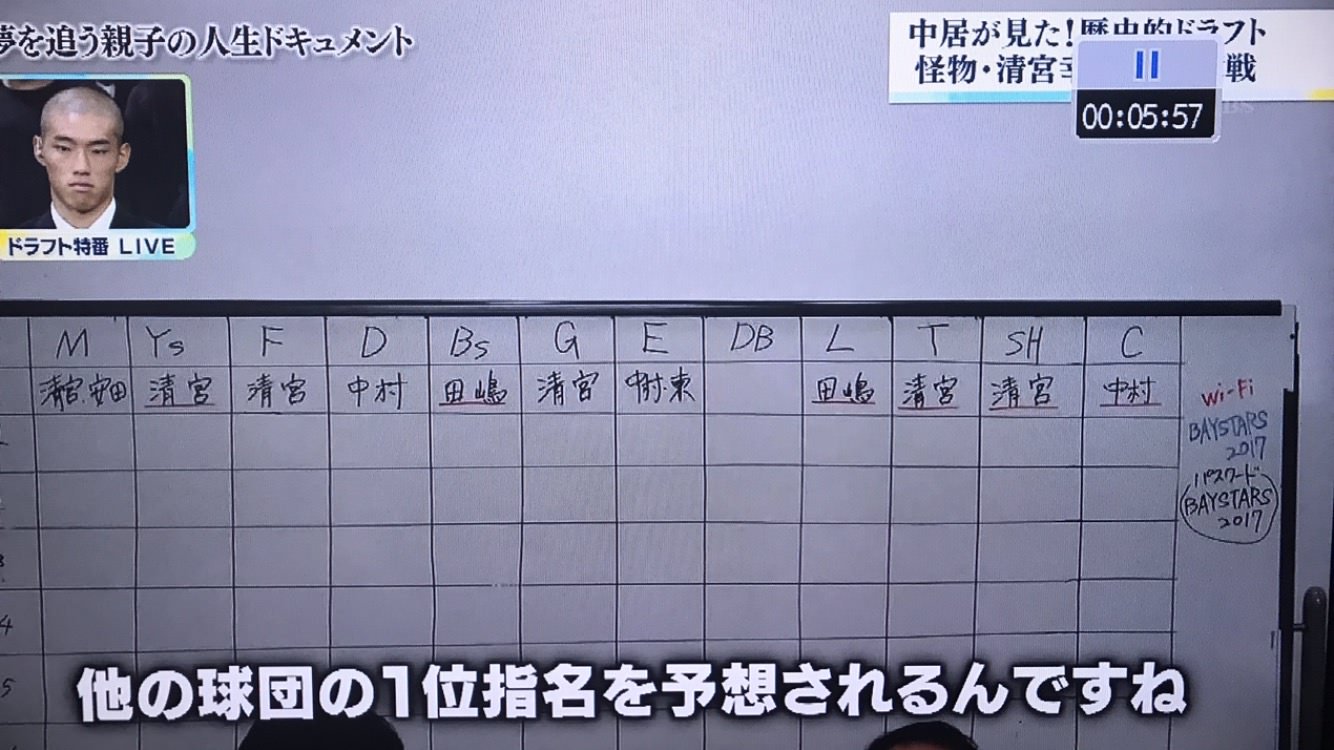 夢を追う親子の人生ドキュメント
中居が見た!歴史的ドラフト
怪物・清宮幸
戦
00:05:57
ドラフト特番 LIVE
M Ys F D Bs G E DB L T SH C
清宮.安田 清宮 清宮 中村 田嶋 清宮 中村.東 田嶋 清宮 清宮 中村
Wi-Fi
BAYSTARS
2017
パスワード
BAYSTARS
2017
3
4
5
他の球団の1位指名を予想されるんですね